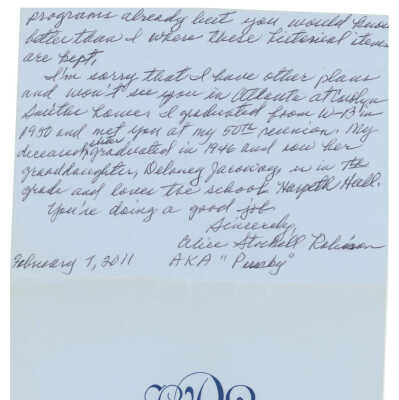 programs already but you would know
better than I where these historical items
are kept.
I'm sorry that I have other plans
and won't see you in Atlanta at Carolyn
Smiths home. I graduated from W-B in
1950 and met you at my 50th reunion. My
deceased sister graduated in 1946 and now her
granddaughter, Delaney Jaconway, is in 7th
grade and loves the school Harpeth Hall.
You're doing a good job.
Sincerely,
Alice Stockell Robinson
February 7, 2011 AKA "Pussby"